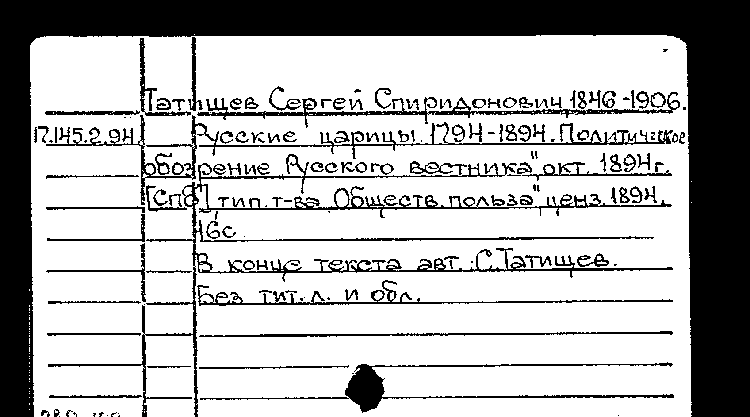 Татищев Сергей Спиридонович, 1846-1906.
17.145.2.94. Русские царицы. 1794-1894. Политическое
обозрение "Русского вестника", окт. 1894г.
[Спб.] тип. т-ва "Обществ. польза", ценз. 1894.
16с.
В конце текста авт.: С. Татищев.
Без тит. л. и обл.